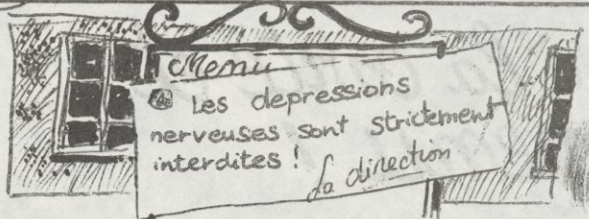 Menu
Les depressions
nerveuses sont strictement
interdites !
La direction